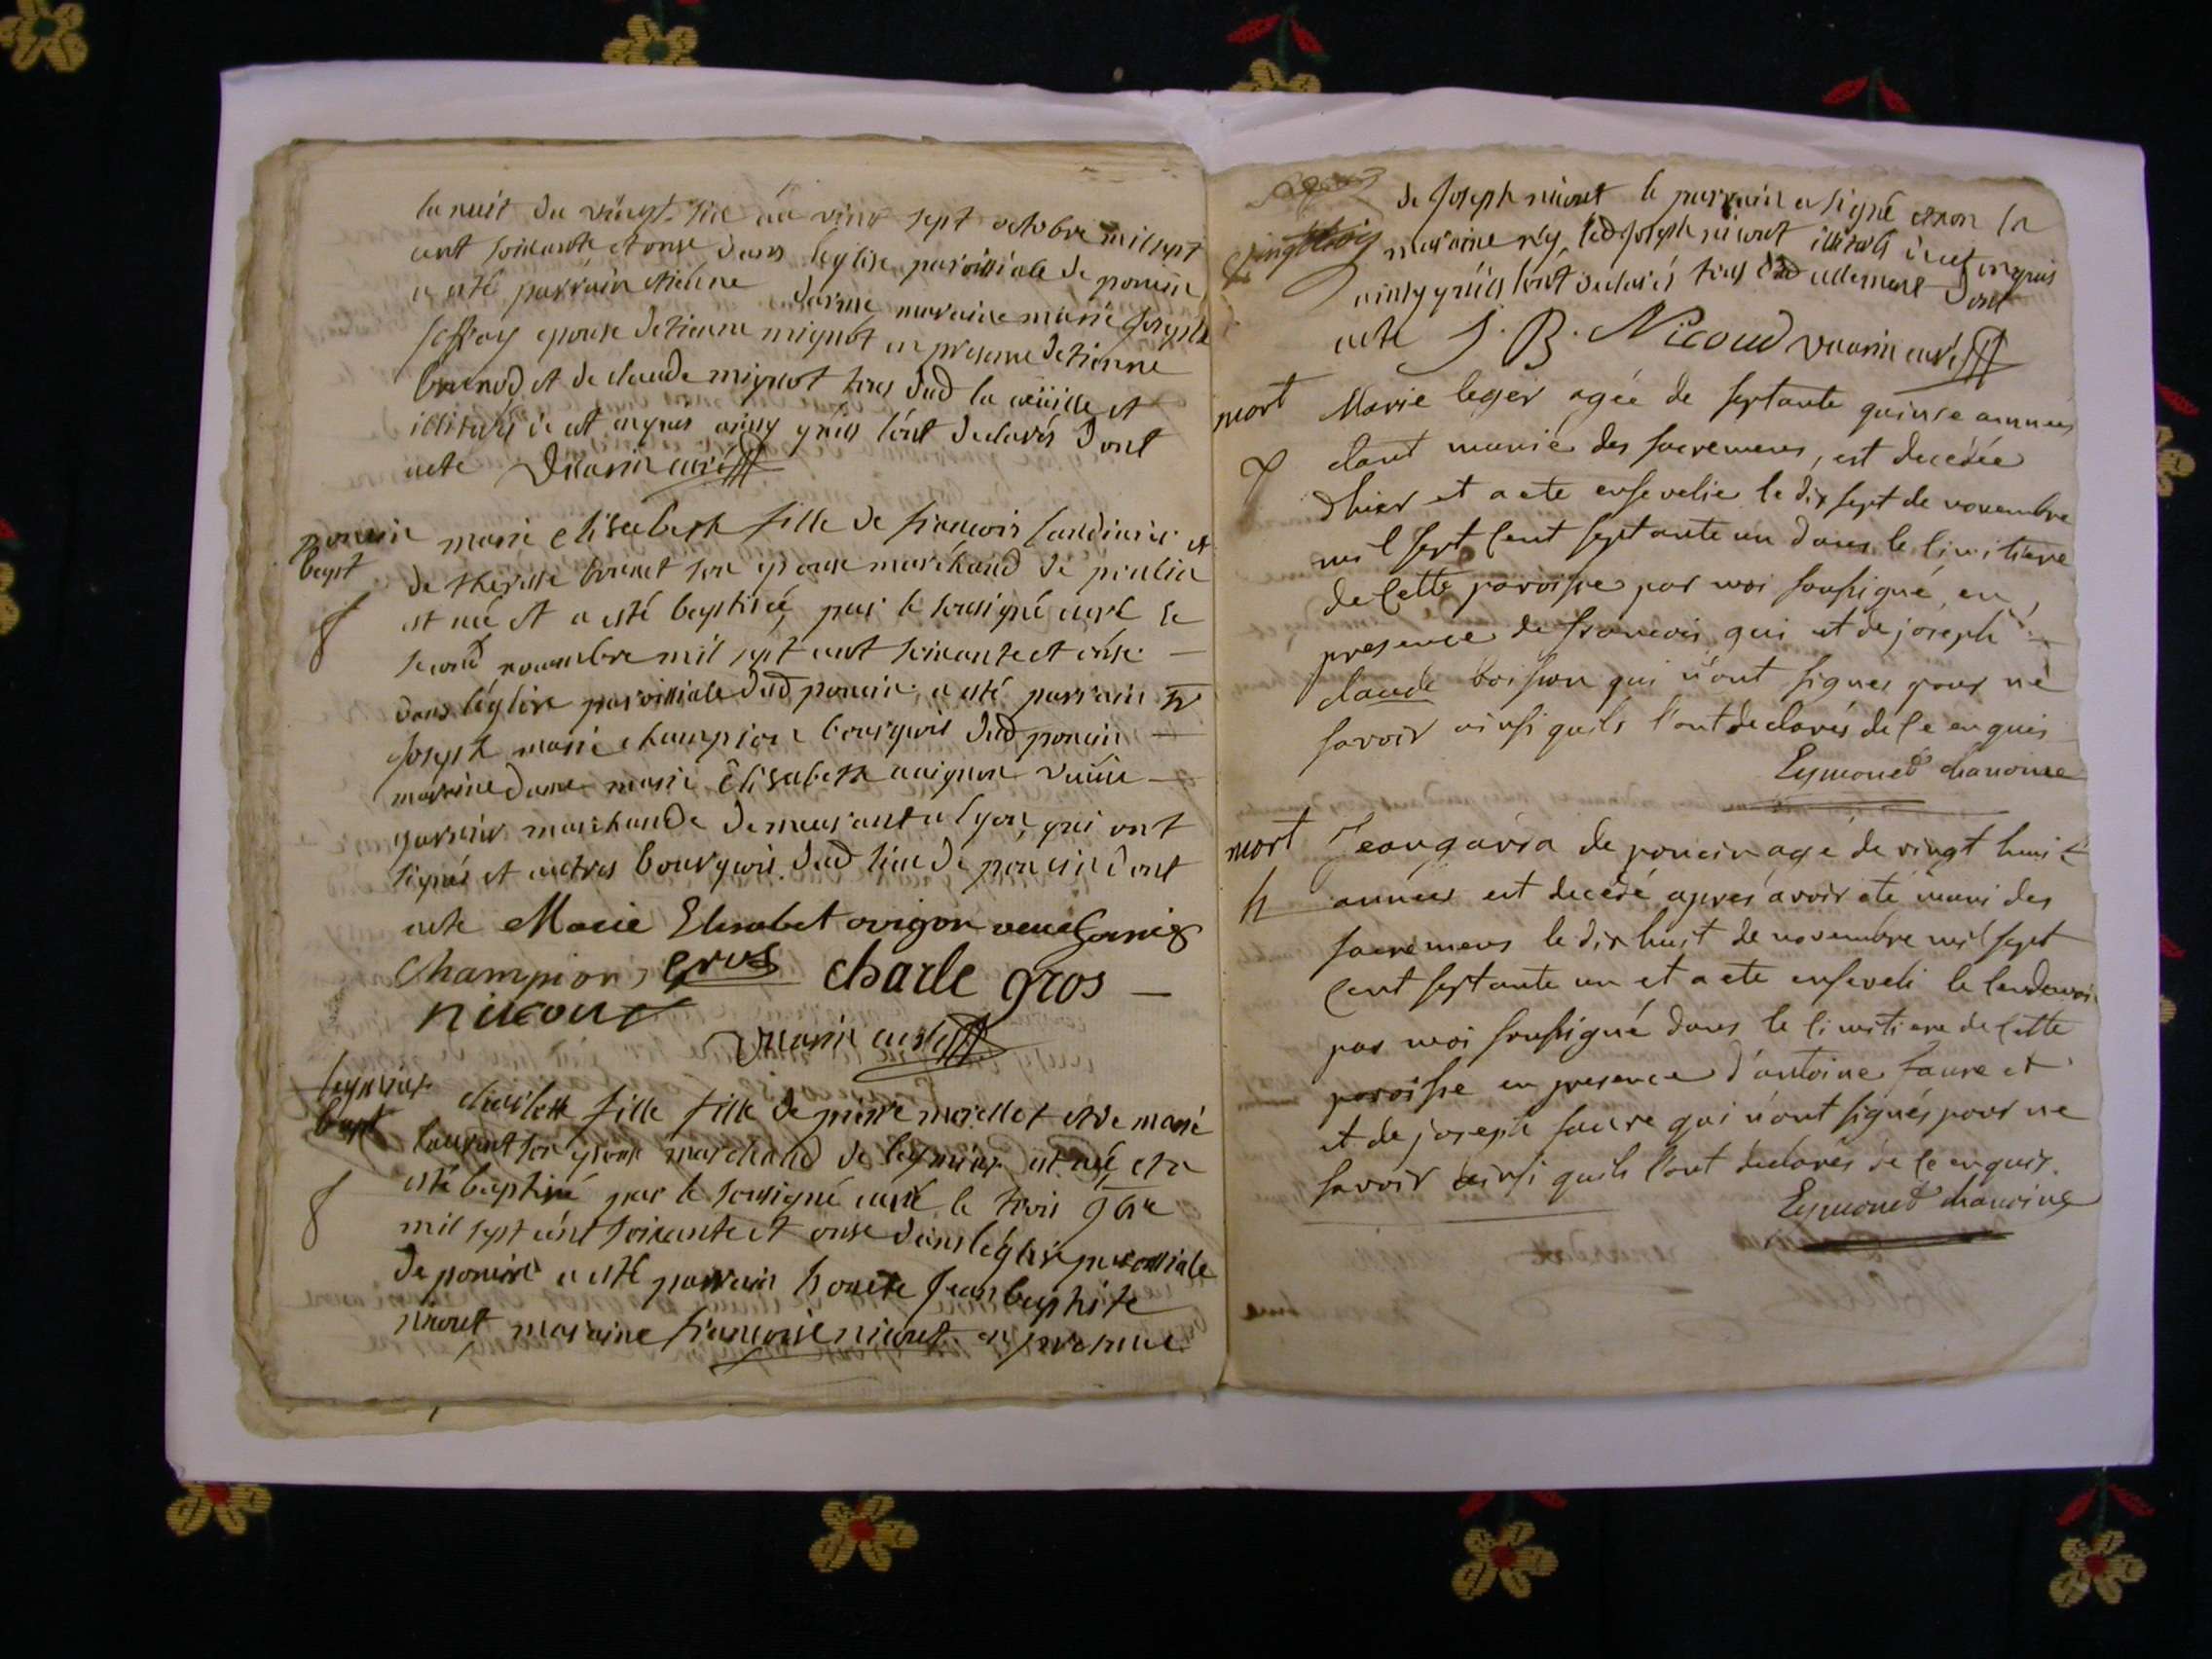 la nuit du vingt six au vingt sept octobre mil sept
cent soixante et onse dans l'eglise paroissiale de poncin
a esté parrain etienne marraine marie joseph
epouse detienne mignot en presence detienne
et de claude mignot tous dud la et
illiterés de ce enquis ainsy quils l'ont declarés dont
acte curé
poncin
bapt
marie elisabeth fille de francois et
de theresse brunet son epouse marchand de poncin
est née et a esté baptisée par le sousigné curé le
second novembre mil sept cent soixante et onse
dans l'église paroissiale dud poncin, a esté parrain
joseph marie champion bourgeois dud poncin
marraine dame marie Elisabeth avignon veuve
garnier marchande demeurant a lyon, qui ont
signés et autres bourgeois dud lieu de poncin dont
acte Marie Elisabet avignon veuve garnier
Champion gros charle gros
nicout
curé
leymiat
bapt
fille fille de pierre morellet et de marie
laurent son epouse marchand de leymiat est née et a
esté baptisé par le sousigné curé le trois 9bre
mil sept cent soixante et onse dans l'église paroissiale
de poncin a esté parrain honete jean baptiste
nicout maraine francoise nicout en presence
de joseph nicout le parrain a signé et non la
vingt trois
maraine ny led joseph nicout illiterés de ce enquis
ainsy quils l'ont declarés tous dud allement dont
acte J. B. Nicoud curé
mort
Marie leger agée de septante quinse années
etant munie des sacremens, est decedée
d'hier et a ete ensevelie le dix sept de novembre
mil sept cent septante un dans le cimitiere
de cette paroisse par moi soussigné en
presence de francois gui et de joseph
claude boisson qui n'ont signes pour ne
savoir ainsi quils l'ont declarés de ce enquis
Eymoned chanoine
mort
Jean gavra de poncin agé de vingt huit
années est decedé apres avoir eté muni des
sacremens le dix huit de novembre mil sept
cent septante un et a ete enseveli le lendemain
par moi soussigné dans le cimitiere de cette
paroisse en presence d'antoine faure et
et de joseph faure qui n'ont signés pour ne
savoir ainsi quils l'ont declarés de ce enquis.
Eymoned chanoine